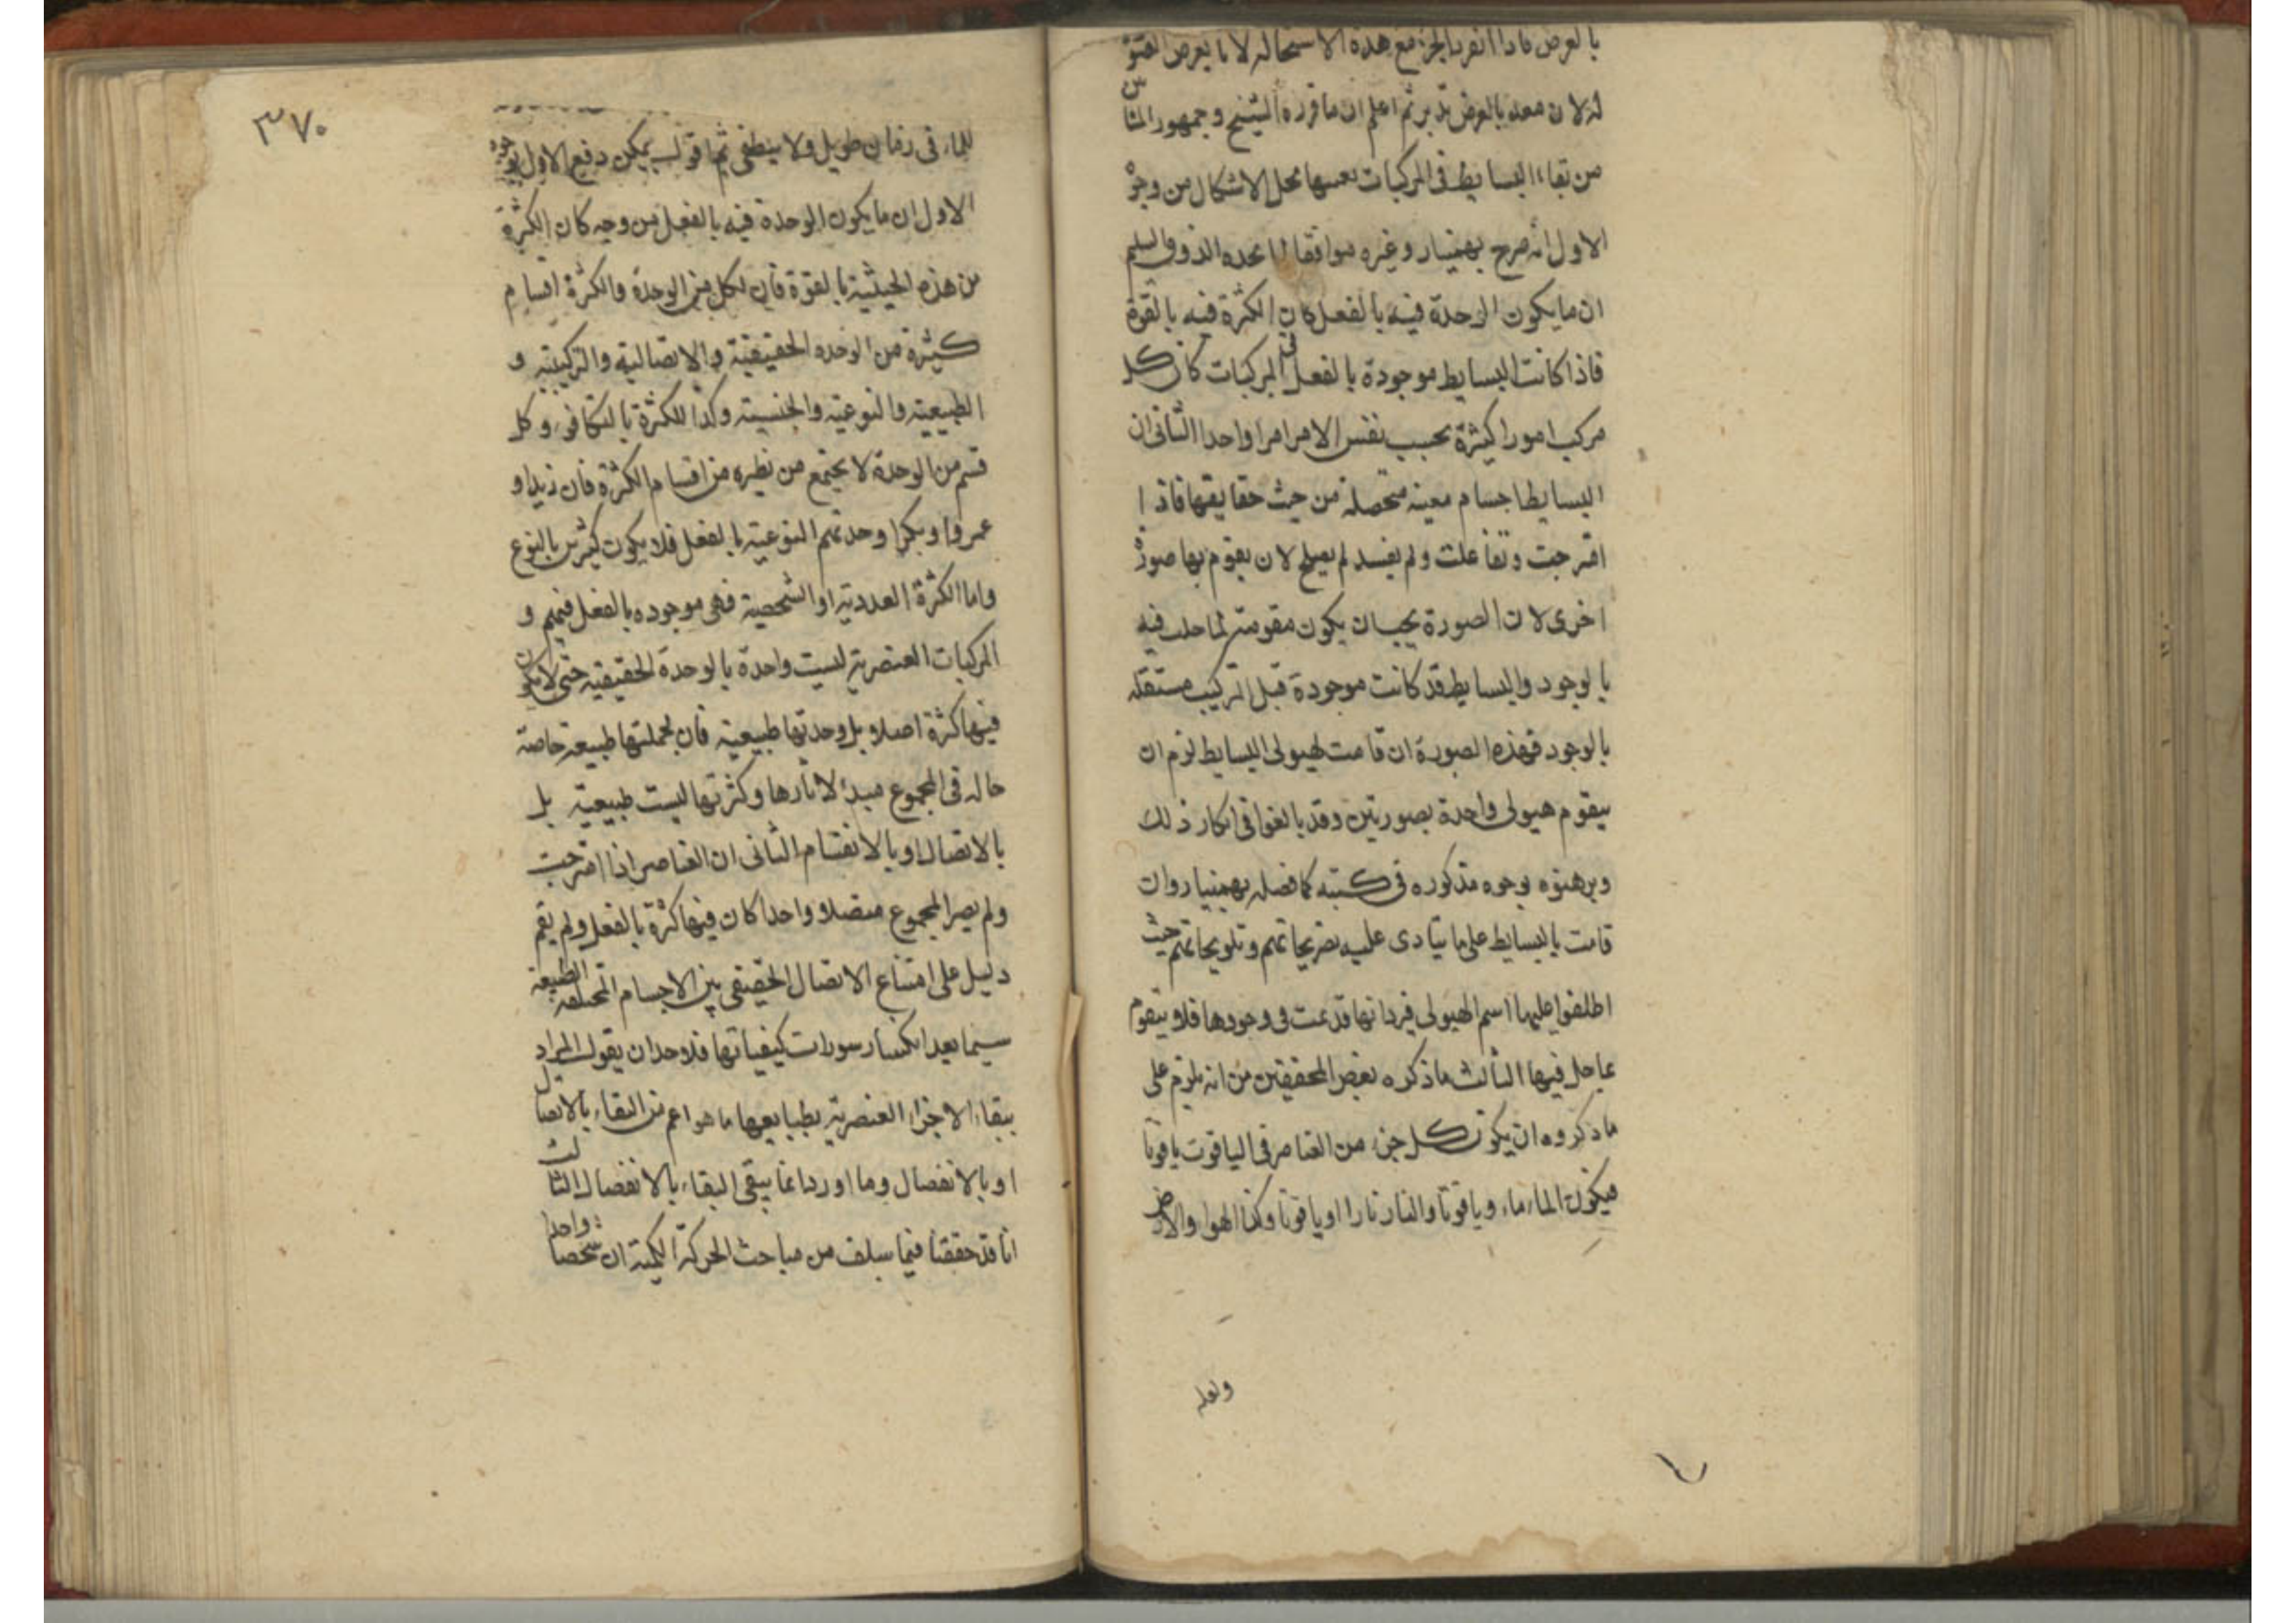 بالعرض فاذا انفرد الجزء مع هذه الاستحاله لا بالعرض
له لان معه بالعرض تدبر ثم اعلم ان ما قرره الشيخ وجمهور المشائين
من بقاء البسايط في المركبات بعينها محل الاشكال من وجوه
الاول انه صرح بهمنيار وغيره موافقا لما يجده الذوق السليم
ان ما يكون الوحدة فيه بالفعل كان الكثرة فيه بالقوة
فاذا كانت البسايط موجودة بالفعل في المركبات كان كل
مركب امورا كثيرة بحسب نفس الامر امرا واحدا الثاني ان
البسايط اجسام معينه متحصلة من حيث حقايقها فاذا
امتزجت وتفاعلت ولم يفسد لم يصلح لان يقوم بها صورة
اخرى لان الصورة يجب ان يكون مقومة لما حلت فيه
بالوجود والبسايط قد كانت موجودة قبل التركيب مستقله
بالوجود فهذه الصورة ان قامت بهيولى البسايط لزم ان
يتقوم هيولى واحدة بصورتين وقد بالغوا في انكار ذلك
وبرهنوه بوجوه مذكوره في كتبه كما فصله بهمنيار وان
قامت بالبسايط على ما يتادى عليه تصريحاتهم وتلويحاتهم حيث
اطلقوا عليها اسم الهيولى فبذاتها قد تمت في وجودها فلا يتقوم
بما حل فيها الثالث ما ذكره بعض المحققين من انه يلزم على
ما ذكروه ان يكون كل جزء من العناصر في الياقوت ياقوتا
فيكون الماء ماء وياقوتا والنار نارا او ياقوتا وكذا الهواء والارض
ولعله
٣٧٠
للماء في زمان طويل ولا ينطفي ثم اقول يمكن دفع الاول بوجوه
الاول ان ما يكون الوحدة فيه بالفعل من وجه كان الكثرة
من هذه الحيثية بالقوة فان لكل من الوحدة والكثرة اقسام
كثيرة من الوحده الحقيقية والاتصالية والتركيبية و
الطبيعية والنوعية والجنسية وكذا للكثرة بالتكافؤ وكل
قسم من الوحدة لا يجتمع من نظيره من اقسام الكثرة فان زيدا و
عمروا وبكرا وحدتهم النوعية بالفعل فلا يكون كثيرين بالنوع
واما الكثرة العددية او الشخصية فهي موجوده بالفعل فيهم و
المركبات العنصرية ليست واحدة بالوحدة الحقيقية حتى لا يكون
فيها كثرة اصلا بل وحدتها طبيعية فان لجملتها طبيعة خاصة
حاله في المجموع مبدء لاثارها وكثرتها ليست طبيعية بل
بالاتصال او بالانقسام الثاني ان العناصر اذا امتزجت
ولم يصر المجموع متصلا واحدا كان فيها كثرة بالفعل ولم يقم
دليل على امتناع الاتصال الحقيقي بين الاجسام المختلفة الطبيعة
سيما بعد انكسار سورات كيفياتها فلاحد ان يقول المراد
ببقاء الاجزاء العنصرية بطبايعها ما هو اعم من البقاء بالاتصال
او بالانفصال وما اورد انما يبقى البقاء بالانفصال الثالث
انا قد حققنا فيما سلف من مباحث الحركة الكمية ان شخصا واحدا